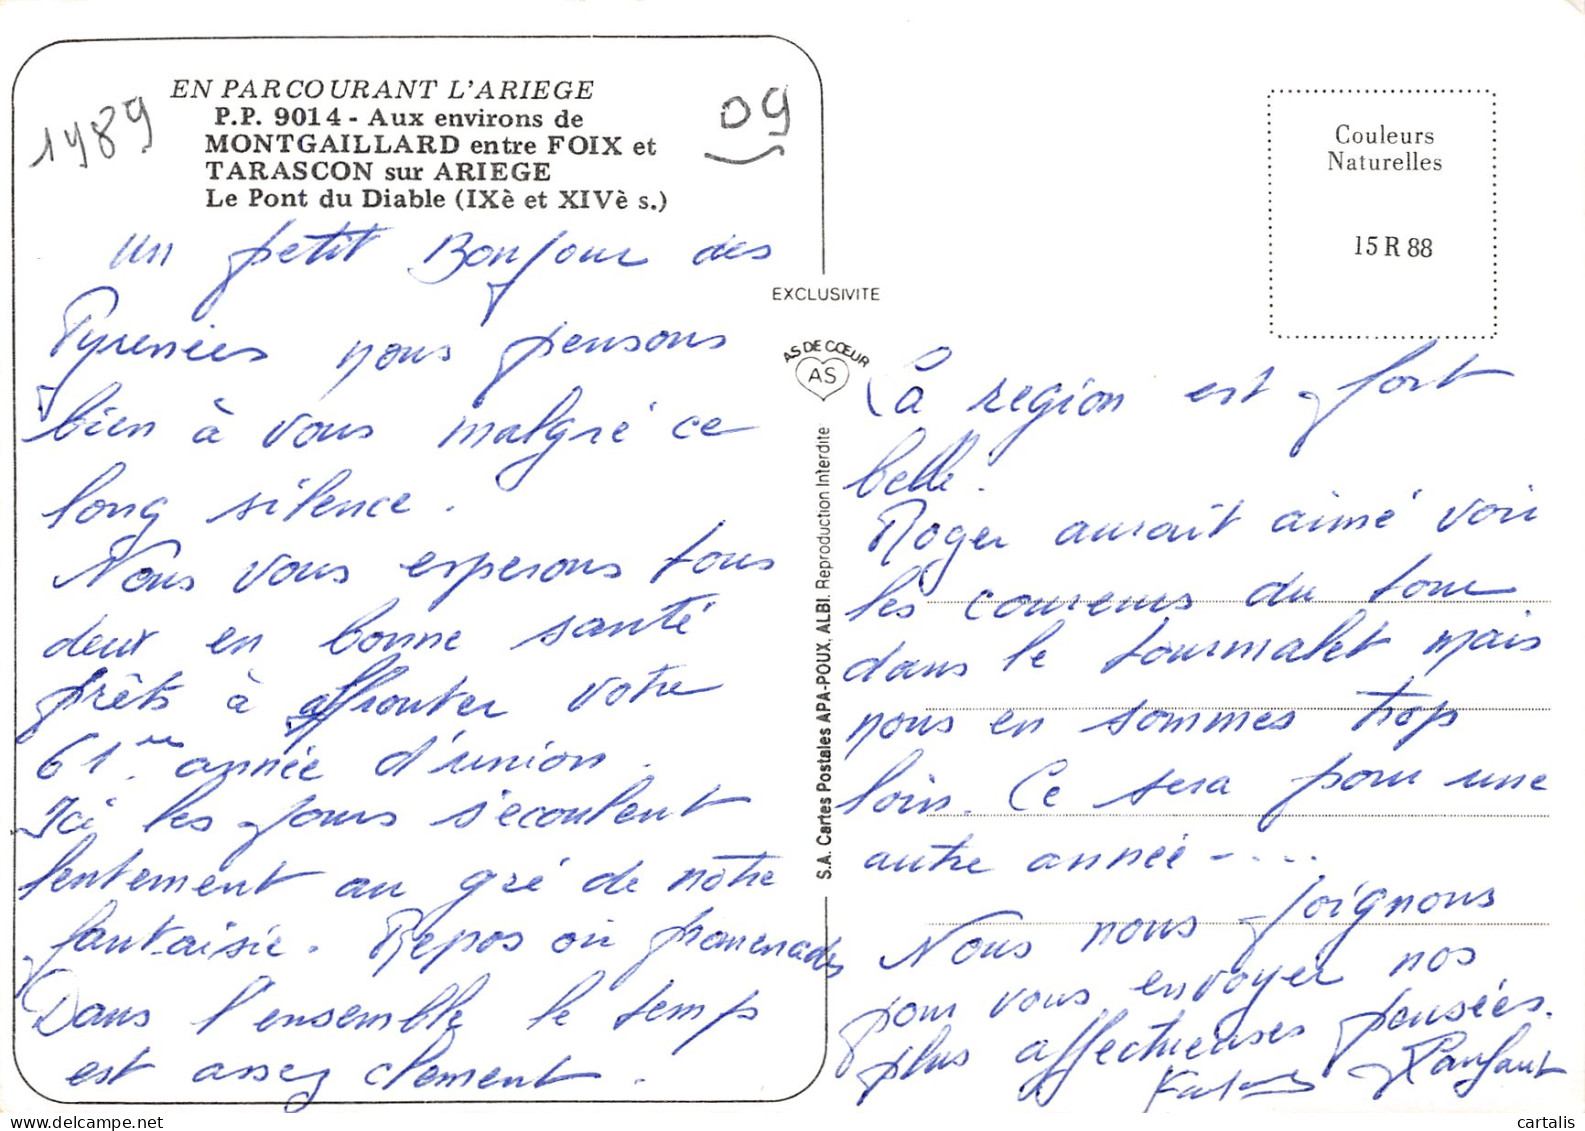 EN PARCOURANT L'ARIEGE
P.P. 9014 - Aux environs de
MONTGAILLARD entre FOIX et
TARASCON sur ARIEGE
Le Pont du Diable (IXè et XIVè s.)
1989
09
Un petit Bonjour des
Pyrenées nous pensons
bien à vous malgré ce
long silence.
Nous vous esperons tous
deux en bonne santé
prêts à affronter votre
61.ee année d'union.
Ici les jours s'ecoulent
lentement au gré de notre
fantaisie. Repos ou promenades
Dans l'ensemble le temps
est assez clement.
EXCLUSIVITE
AS DE CŒUR
AS
S.A. Cartes Postales APA-POUX ALBI. Reproduction Interdite
Couleurs
Naturelles
15 R 88
La region est fort
belle.
Roger aurait aimé voir
les coureurs du tour
dans le tourmalet mais
nous en sommes trop
loin. Ce sera pour une
autre année - ....
Nous nous joignons
pour vous envoyer nos
plus affectueuses pensées.
cartalis